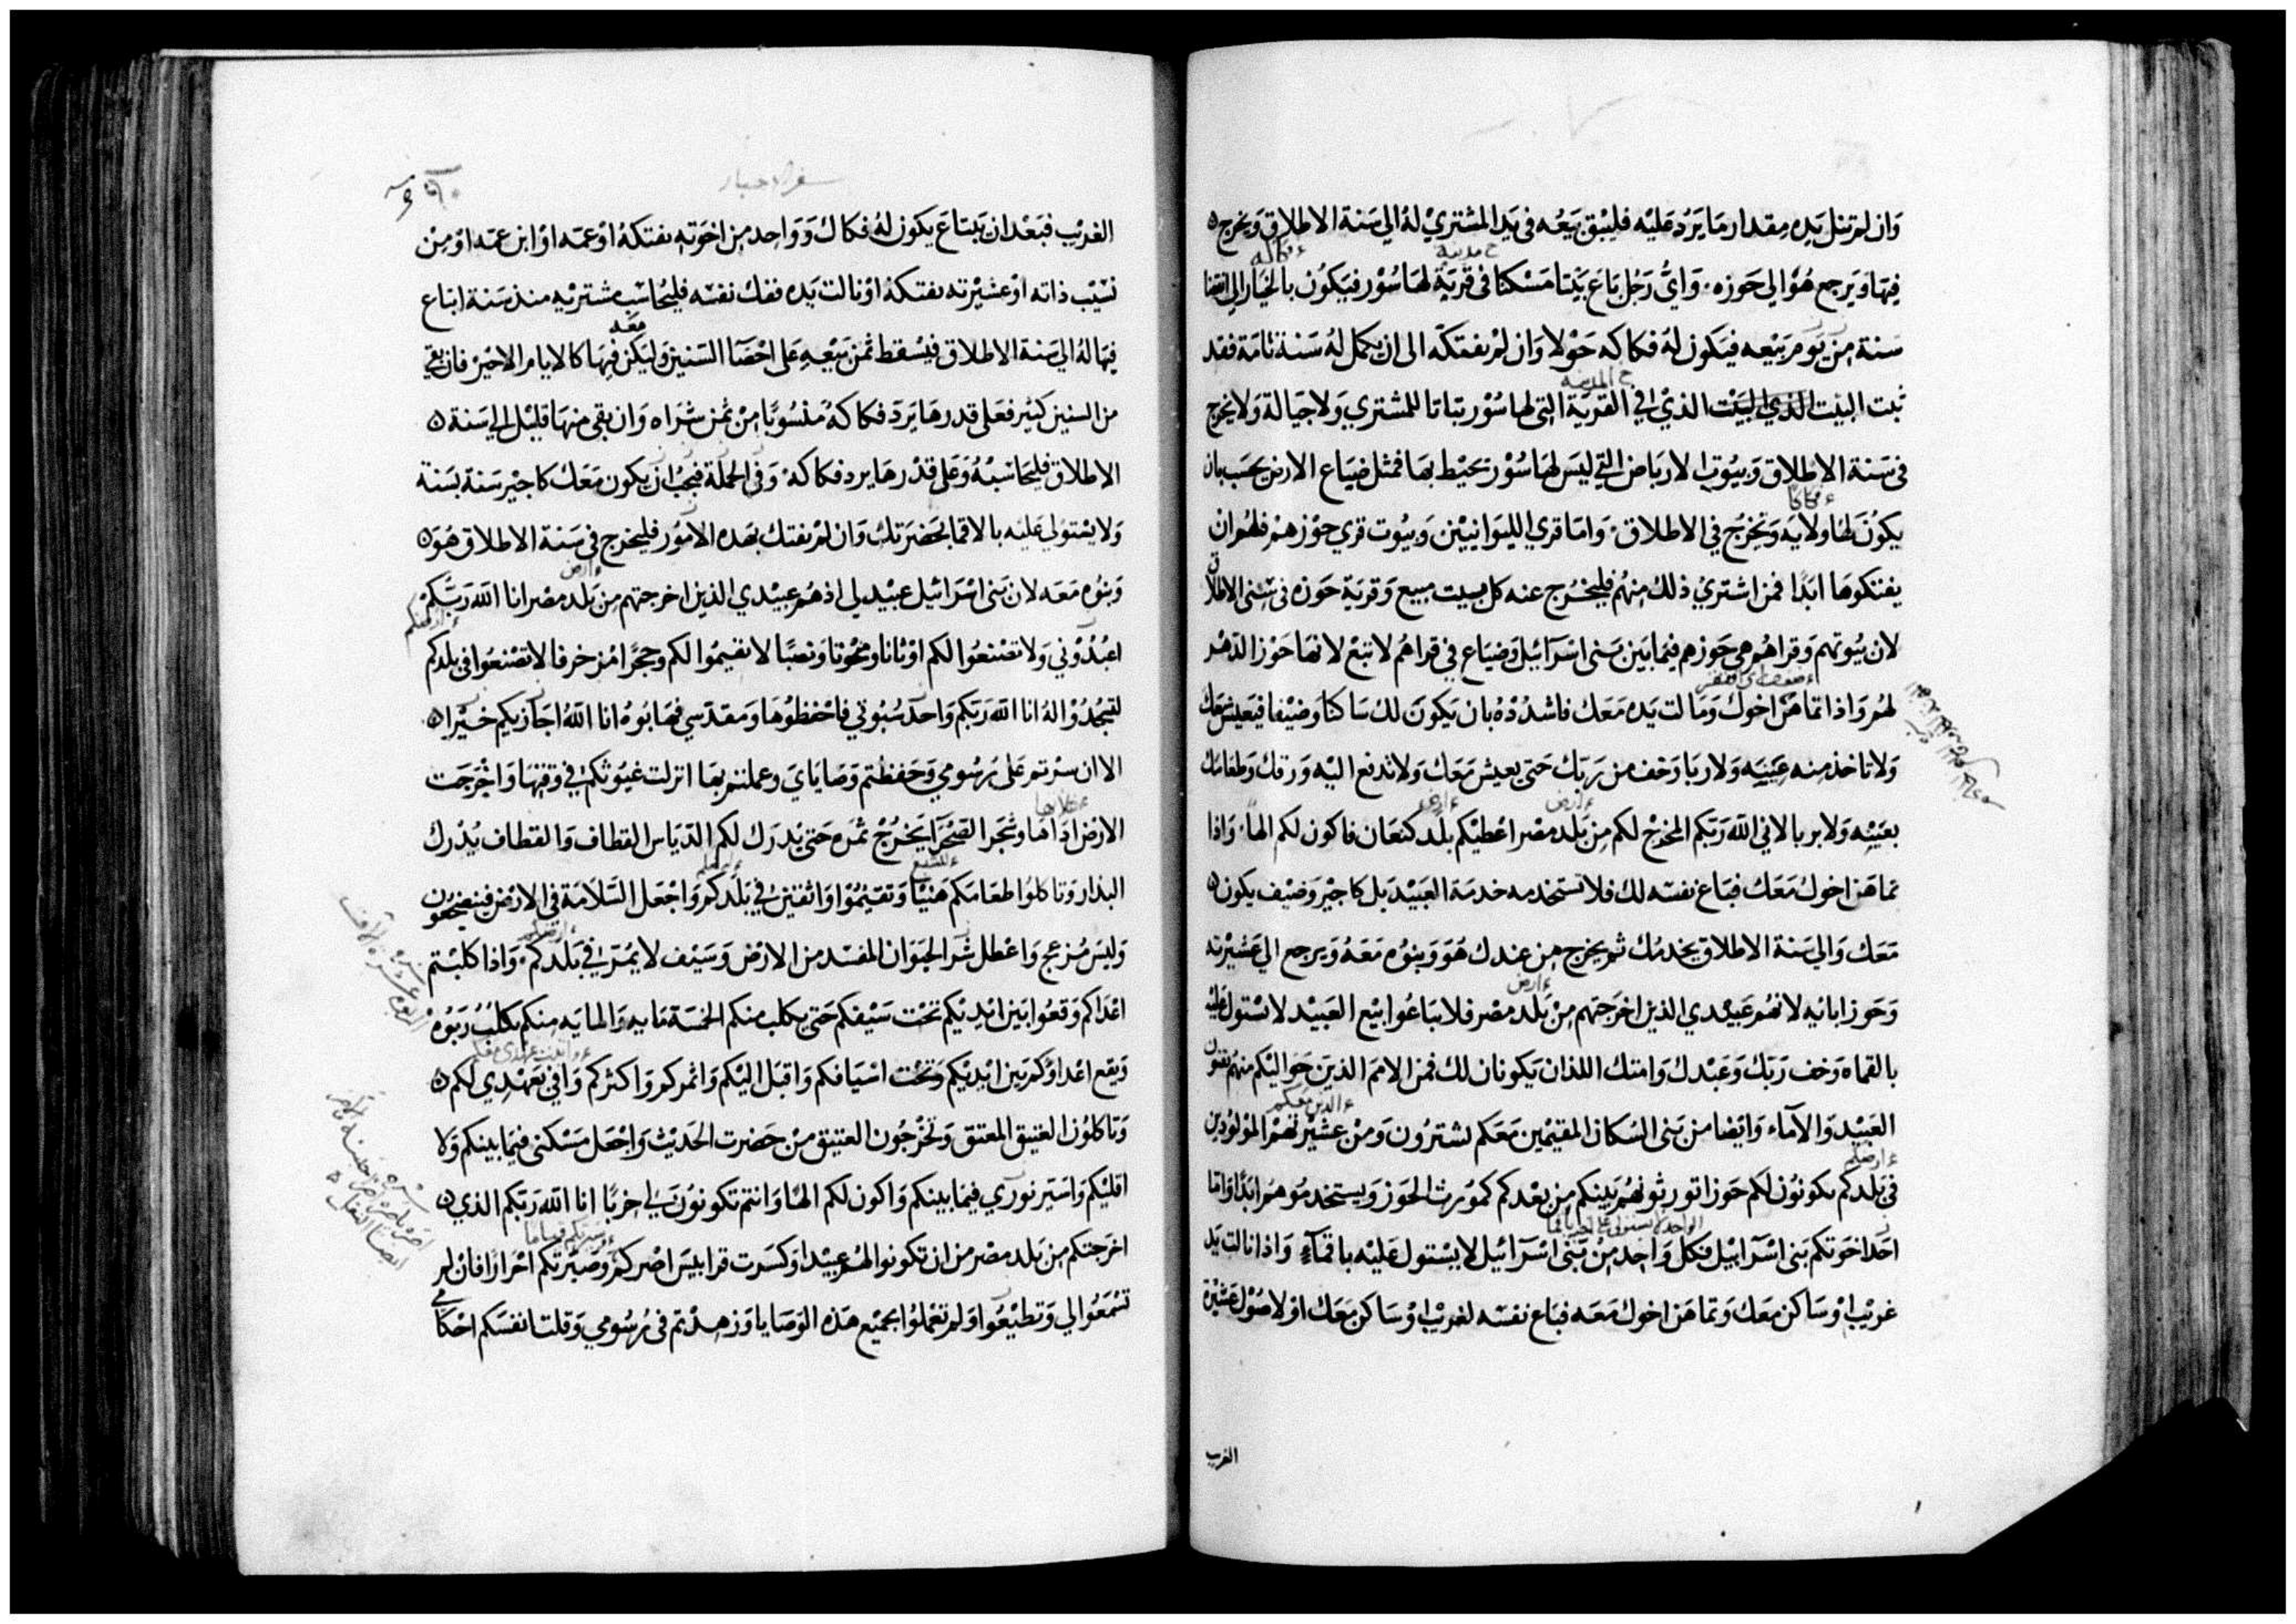 وان لم تنل يده مقدار ما يرد عليه فليبق بيعه في يد المشتري له الي سنة الاطلاق ويخرج
فيها ويرجع هو الي حوزه. واي رجل باع بيتا مسكنا في قرية لها سور فيكون بالخيار الي انقضا
سنة من يوم بيعه فيكون له فكاكه حولا وان لم يفتكه الى ان يكمل له سنة تامة فقد
ثبت البيت الذي البيت الذي في القرية التي لها سور بتاتا للمشتري ولاجياله ولا يخرج
في سنة الاطلاق وبيوت الارباض التي ليس لها سور تحيط بها فمثل ضياع الارض يحسب بان
يكون لها ولايه وتخرج في الاطلاق. واما قري الليوانيين وبيوت قري حوزهم فلهم ان
يفتكوها ابدا فمن اشتري ذلك منهم فليخرج عنه كل بيت مبيع وقرية حوزه في سني الاطلاق
لان بيوتهم وقراهم هي حوزهم فيما بين بني اسرآئيل وضياع في قراهم لا تبع لانها حوز الدهر
لهم واذا تماهن اخوك ومالت يده معك فاشدده بان يكون لك ساكنا وضيفا فيعيش معك
ولا تاخذ منه عينة ولا ربا وخف من ربك حتى يعيش معك ولا تدفع اليه ورقك وطعامك
بعينه ولا بربا لاني الله ربكم المخرج لكم من بلد مصر اعطيكم بلد كنعان فاكون لكم الها. واذا
تماهن اخوك معك فباع نفسه لك فلا تستخدمه خدمة العبيد بل كاجير وضيف يكون
معك والي سنة الاطلاق يخدمك ثم يخرج من عندك هو وبنوه معه ويرجع الي عشيرته
وحوز ابائه لانهم عبيدي الذين اخرجتهم من بلد مصر فلا يباعوا بيع العبيد لا تستول عليه
بالقماه وخف ربك وعبدك وامتك اللذان يكونان لك فمن الامم الذين حواليكم منهم تقتنون
العبيد والآماء وايضا من بني السكان المقيمين معكم تشترون ومن عشيرتهم المولودين
في بلدكم يكونون لكم حوزا تورثونهم بنيكم من بعدكم كموُرث الحوز ويستخدموهم ابدا واما
احد اخوتكم بني اسرآئيل فكل واحد من بني اسرآئيل لا يستول عليه باقمآء واذا نالت يد
غريب او ساكن معك وتماهن اخوك معه فباع نفسه لغريب او ساكن معك او لاصول عشيرة
الغرب
سفر الاحبار
الغريب فبعد ان يبتاع يكون له فكاك وواحد من اخوته يفتكه او عمه او ابن عمه او من
نسيب ذاته او عشيرته يفتكه او نالت يده ففك نفسه فليحاسب مشتريه منذ سنة ابتاع
فيها له الي سنة الاطلاق فيسقط ثمن بيعه على احصآ السنين وليكن فيها كالايام الاجير فان بقي
من السنين كثير فعلى قدرها يرد فكاكه منسوبا من ثمن شراه وان بقي منها قليل الي سنة
الاطلاق فليحاسبه وعلى قدرها يرد فكاكه وفي الجملة فيجب ان يكون معك كاجير سنة بسنة
ولا يستولي عليه بالاقما بحضرتك وان لم يفتك بهده الامور فليخرج في سنة الاطلاق هو
وبنوه معه لان بني اسرآئيل عبيد لي اذ هم عبيدي الذين اخرجتهم من بلد مصر انا الله ربكم
اعبدوني ولا تصنعوا لكم اوثانا ومنحوتا ونصبا لا تقيموا لكم وحجرا مزخرفا لا تصنعوا في بلدكم
لتسجدوا له انا الله ربكم واحد سبوتي فاحفظوها ومقدسي فهابوه انا الله اجازيكم خيرا
الا ان سرتم على رسومي وحفظتم وصاياي وعملتم بها انزلت غيوثكم في وقتها واخرجت
الارض اداها وشجر الصحرآ يخرج ثمره حتى يدرك لكم الدياس القطاف والقطاف يدرك
البذار وتاكلوا طعامكم هنيئا وتقيموا واثقين في بلدكم واجعل السلامة في الارض فينضجعون
وليس مزعج واعطل شر الحيوان المفسد من الارض وسيف لا يمر في بلدكم. واذا كلبتم
اعداكم وقعوا بين ايديكم تحت سيفكم حتى يكلب منكم الخمسة مايه والمايه منكم يكلب ربوه
ويقع اعداؤكم بين ايديكم وتحت اسيافكم واقبل اليكم واثمركم واكثركم وافي بعهدي لكم
وتاكلون العتيق المعتق وتخرجون العتيق من حضرت الحديث واجعل مسكني فيما بينكم ولا
اقليكم واسير نوري فيما بينكم واكون لكم الها وانتم تكونون لي اخربا انا الله ربكم الذي
اخرجتكم من بلد مصر من ان تكونوا لهم عبيدا وكسرت قرابيس اصركم وصيرتكم احرارا فان لم
تسمعوا لي وتطيعوا ولم تعملوا بجميع هذه الوصايا وزهدتم في رسومي وقلت انفسكم احكامي